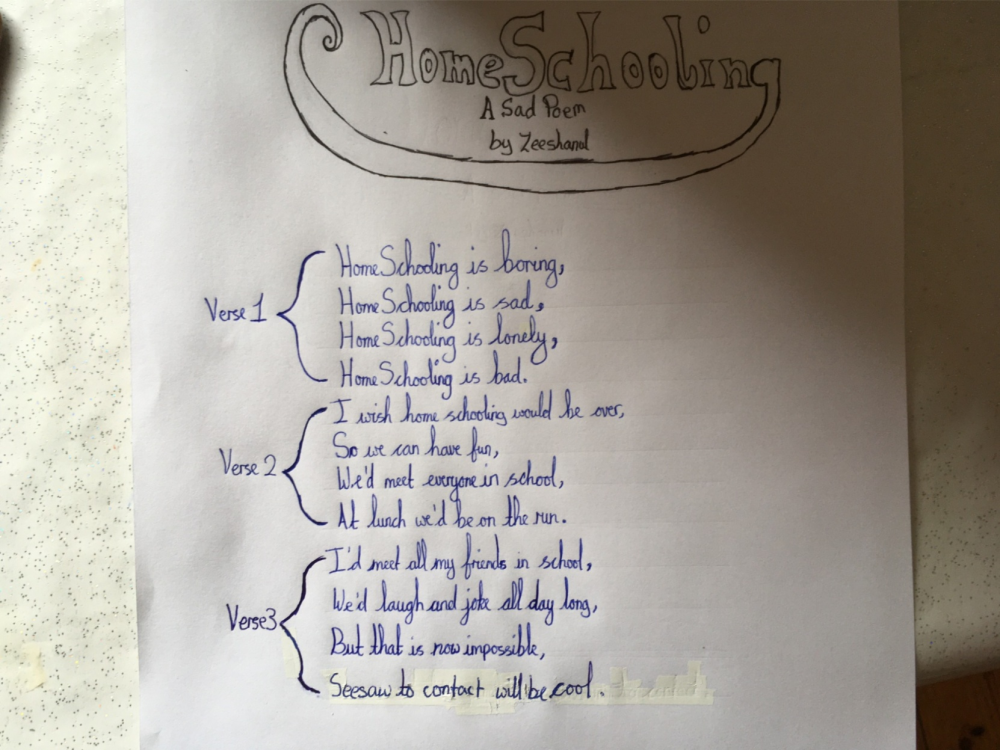 HomeSchooling
A Sad Poem
by Zeeshan
Verse 1
HomeSchooling is boring,
HomeSchooling is sad,
HomeSchooling is lonely,
HomeSchooling is bad.
Verse 2
I wish home schooling would be over,
So we can have fun,
We'd meet everyone in school,
At lunch we'd be on the run.
Verse3
I'd meet all my friends in school,
We'd laugh and joke all day long,
But that is now impossible,
Seesaw to contact will be cool.